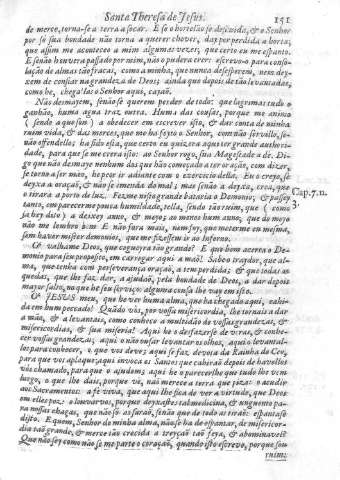 Santa Theresa de Jesus.
151
de merce, torna-se a terra a secar. E se o hortelão se descuida, & o Senhor
por só sua bondade não torna a querer chover, day por perdida a horta;
que assim me aconteceo a mim algumas vezes, que certo eu me espanto.
E senão houvera passado por mim, não o pudera crer: escrevo-o para conso-
lação de almas tão fracas, como a minha, que nunca desesperem, nem dey-
xem de confiar na grandeza de Deos; ainda que depois de tão levantadas,
como he, chegalas o Senhor aqui, cayão.
Não desmayem, senão se querem perder de todo: que lagrimas tudo o
ganhão, huma agua traz outra. Huma das cousas, porque me animo
(sendo a que sou) a obedecer em escrever isto, & dar conta de minha
ruim vida, & das merces, que me ha feyto o Senhor, com não servillo, se-
não offendello; ha sido esta, que certo eu quizera aqui ter grande authori-
dade, para que se me crera isto: ao Senhor rogo, sua Magestade a dé. Di-
go que não desmaye nenhum dos que hão começado a ter oração, com dizer,
se torno a ser máo, he peor ir adiante com o exercicio della. Eu o creyo, se
deyxa a oração, & não se imenda do mal; mas senão a deyxa, crea, que
o tirará a porto de luz. Fezme nisto grande bataria o Demonio, & passey
tanto, em parecerme pouca humildade, tella, sendo tão ruim, que (como
já hey dito) a deixey anno, & meyo; ao menos hum anno, que do meyo
não me lembro bem. E não fora mais, nem foy, que meterme eu mesma,
sem haver mister demonios, que me fizessem ir ao Inferno.
Cap.7.n.
3.
O valhame Deos, que cegueyra tão grande! E que bem acerta o De-
monio para seu proposito, em carregar aqui a mão! Sabe o traydor, que al-
ma, que tenha com perseverança oração, a tem perdida; & que todas as
quedas, que lhe faz dar, a ajudão, pela bondade de Deos, a dar depois
mayor salto, no que he seu serviço: alguma cousa lhe vay em isto.
O JESUS meu, que he ver huma alma, que ha chegado aqui, cahi-
da em hum peccado! Quãdo vós, por vossa misericordia, lhe tornais a dar
a mão, & a levantais, como conhece a multidão de vossas grandezas, &
misericordias, & sua miseria! Aqui he o desfazerse de veras, & conhe-
cer vossas grandezas; aqui o não ousar levantar os olhos, aqui o levantal-
los para conhecer, o que vos deve; aqui se faz devota da Rainha do Ceo,
para que vos aplaque; aqui invoca os Santos que cahirão depois de havellos
vós chamado, para que o ajudem; aqui he o parecerlhe que tudo lhe vem
largo, o que lhe dais, porque vé, não merece a terra que piza: o acudir
aos Sacramentos: a fé viva, que aqui lhe fica de ver a virtude, que Deos
em elles poz: o louvarvos, porque deyxastes tal medicina, & unguento pa-
ra nossas chagas, que não só as sarão, senão que de todo as tirão: espantase
disto. E quem, Senhor de minha alma, não se ha de espantar, de misericor-
dia tão grande, & merce tão crecida a treyção tão feya, & abominavel?
Que não sey como não se me parte o coração, quando isto escrevo, porque sou
ruim: